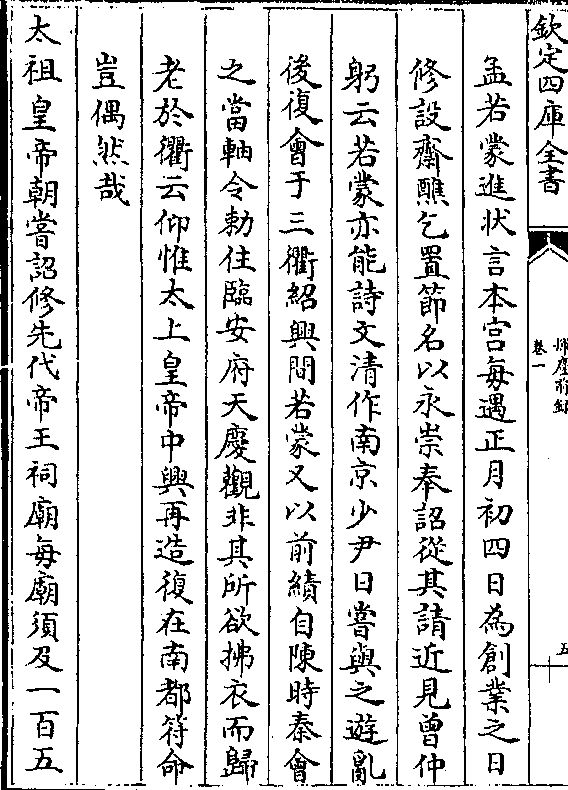 欽定四庫全書
揮麈前録
卷一
五
孟若蒙進狀言本宫每遇正月初四日為創業之日
修設齋醮乞置節名以永崇奉詔從其請近見曾仲
躬云若蒙亦能詩文清作南京少尹日嘗與之遊亂
後復會于三衢紹興間若蒙又以前績自陳時秦會
之當軸令勅住臨安府天慶觀非其所欲拂衣而歸
老於衢云仰惟太上皇帝中興再造復在南都符命
豈偶然哉
太祖皇帝朝嘗詔修先代帝王祠廟每廟須及一百五